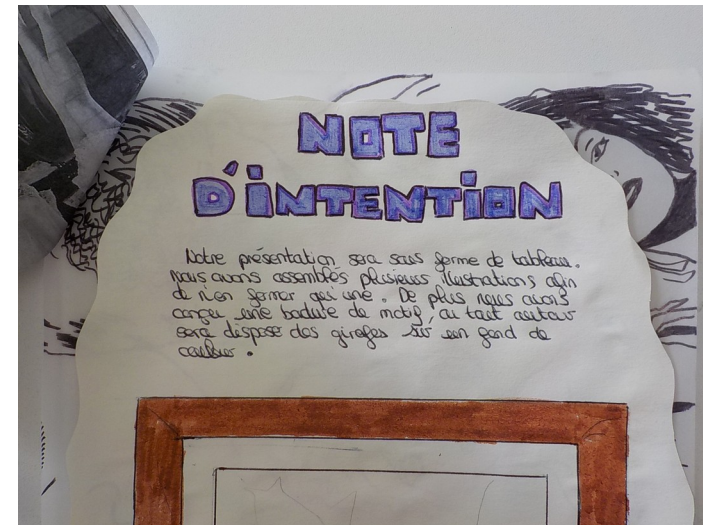 NOTE
D'INTENTION
Notre présentation sera sous forme de tableau.
Nous avons assemblés plusieurs illustrations afin
de n'en former qu'une. De plus nous avons
conçu une bordure de motif, au tout autour
sera disposé des girafes sur un fond de
couleur.